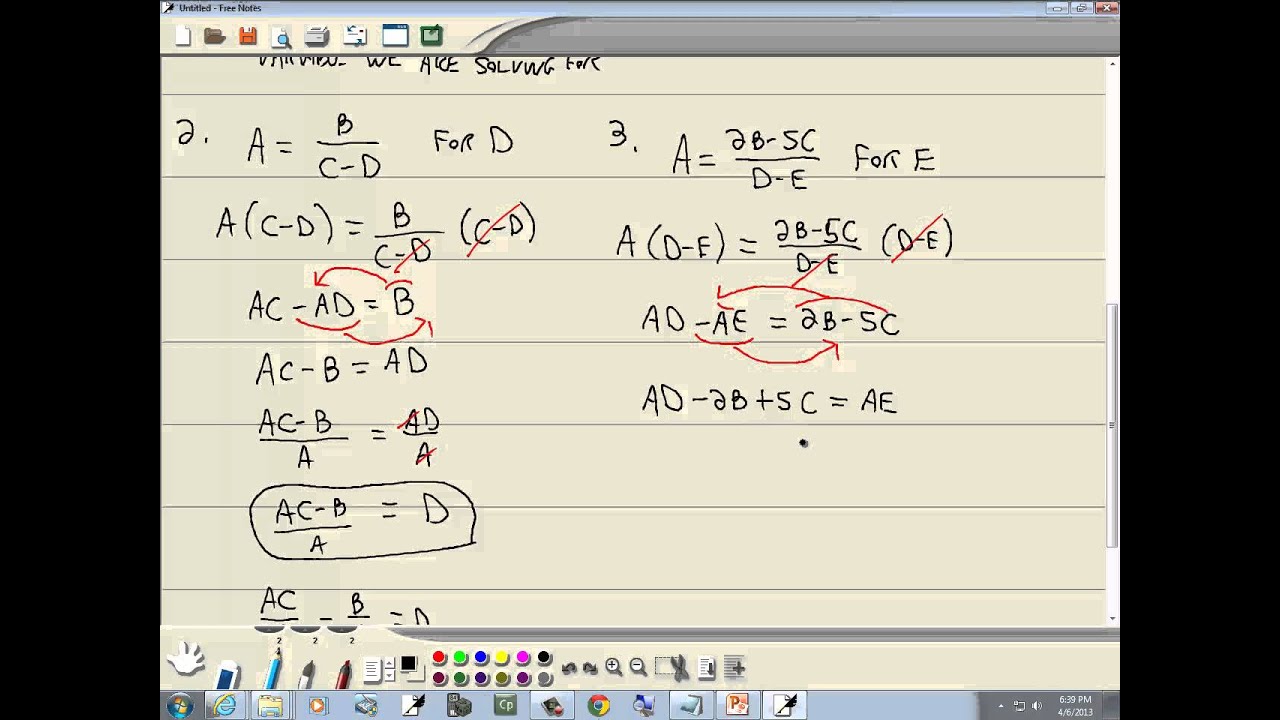 Untitled - Free Notes
VARIABLE WE ARE SOLVING FOR
2. A = B / C-D FOR D
A(C-D) = B / C-D (C-D)
AC - AD = B
AC - B = AD
AC-B / A = AD / A
AC-B / A = D
AC - B = D
3. A = 2B-5C / D-E FOR E
A(D-E) = 2B-5C / D-E (D-E)
AD - AE = 2B - 5C
AD - 2B + 5C = AE
2 2 2
Cp
6:39 PM
4/6/2013